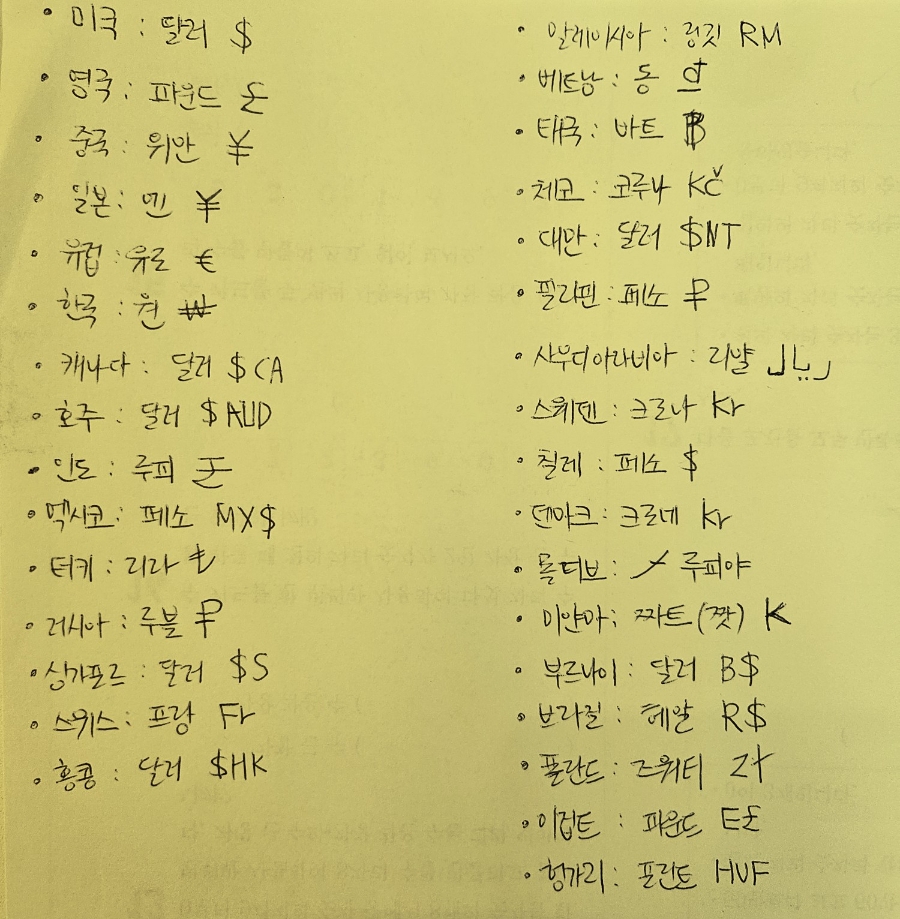 • 미국 : 달러 $
• 영국 : 파운드 £
• 중국 : 위안 ¥
• 일본 : 엔 ¥
• 유럽 : 유로 €
• 한국 : 원 ₩
• 캐나다 : 달러 $CA
• 호주 : 달러 $AUD
• 인도 : 루피
• 멕시코 : 페소 MX$
• 터키 : 리라 ₺
• 러시아 : 루블 ₽
• 싱가포르 : 달러 $S
• 스위스 : 프랑 Fr
• 홍콩 : 달러 $HK
• 말레이시아 : 링깃 RM
• 베트남 : 동 ₫
• 태국 : 바트 ฿
• 체코 : 코루나 KČ
• 대만 : 달러 $NT
• 필리핀 : 페소 ₽
• 사우디아라비아 : 리얄 ريال
• 스웨덴 : 크로나 Kr
• 칠레 : 페소 $
• 덴마크 : 크로네 kr
• 몰디브 : 루피야
• 미얀마 : 짜트(짯) K
• 부르나이 : 달러 B$
• 브라질 : 헤알 R$
• 폴란드 : 즈워티 zł
• 이집트 : 파운드 E£
• 헝가리 : 포린트 HUF